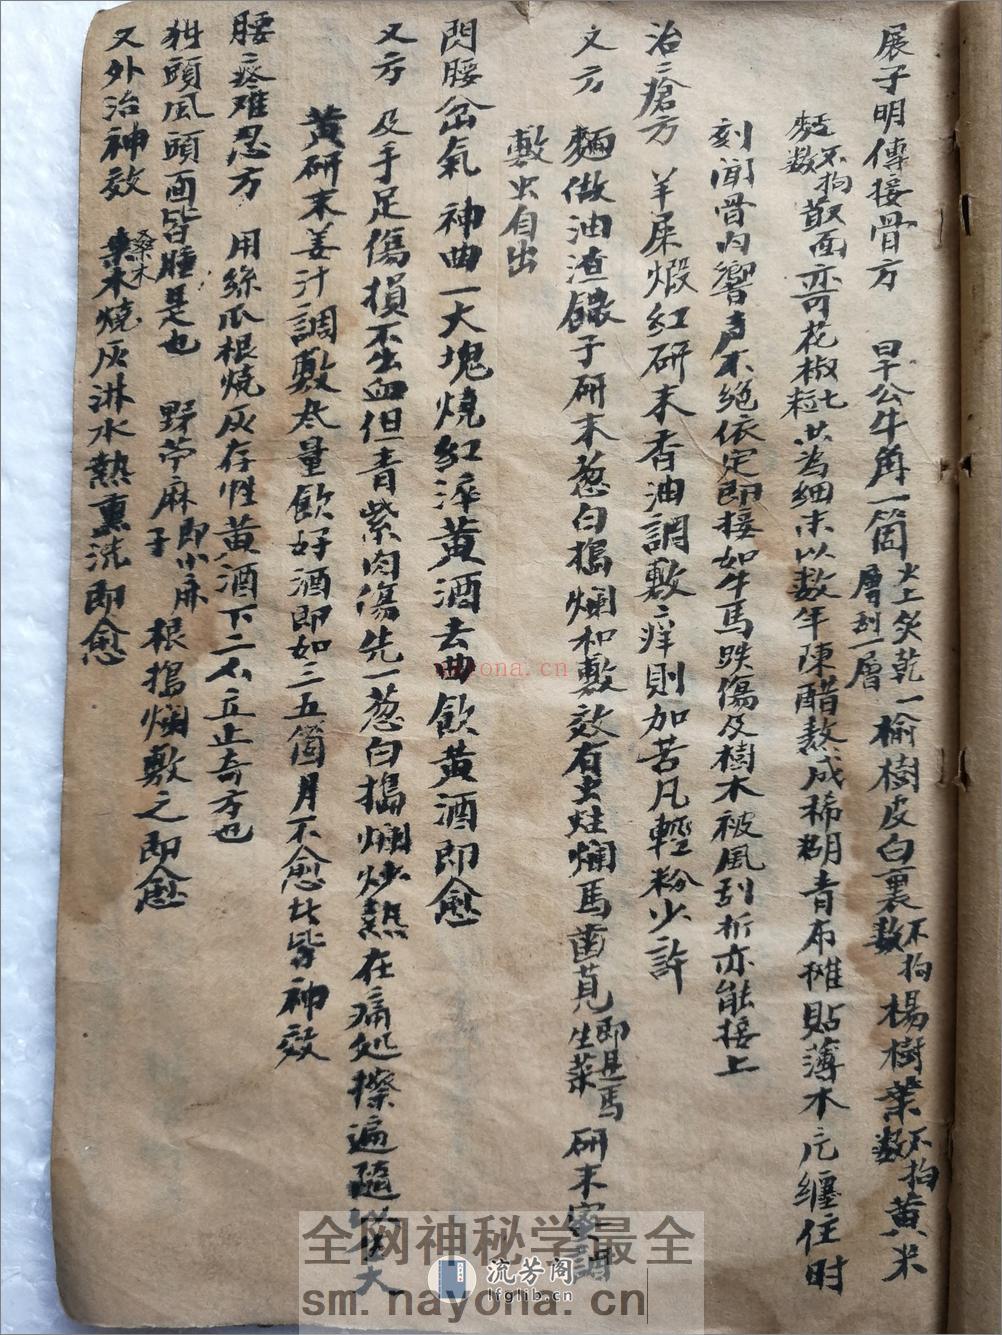 展子明傳接骨方 早公牛角一箇火上炙乾一層刮一層榆樹皮白裏不拘數楊樹葉不拘數黃米
麵不拘數散面亦可花椒七粒共為細末以数年陳醋熬成稀糊青布攤貼薄木片纏住时
刻聞骨内響声不絕依定即接如牛馬跌傷及樹木被風刮折亦能接上
治瘡方 羊屎煅紅研末香油調敷癢則加苦凡輕粉少許
又方 麵做油渣饊子研末葱白搗爛和敷效有虫蛀爛馬齒莧即是馬生菜研末蜜調
敷虫自出
閃腰岔氣 神曲一大塊燒紅淬黃酒去曲飲黃酒即愈
又方 及手足傷損不出血但青紫肉傷先一葱白搗爛炒熱在痛処擦遍隨以生大
黃研末姜汁調敷尽量飲好酒即如三五箇月不愈者皆神效
腰疼难忍方 用絲瓜根燒灰存性黃酒下二不立止奇方也
独頭風頭面皆腫是也 野苧麻即小麻子根搗爛敷之即愈
又外治神效 桑木燒灰淋水熱熏洗即愈
nayona.cn
全网神秘学最全
sm.nayona.cn
流芳阁
lfglib.cn